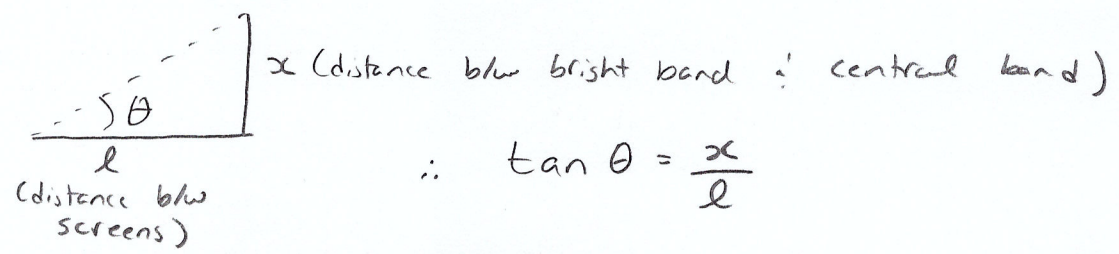 x (distance b/w bright band & central band)
θ
l
(distance b/w
screens)
∴ tan θ = x/l